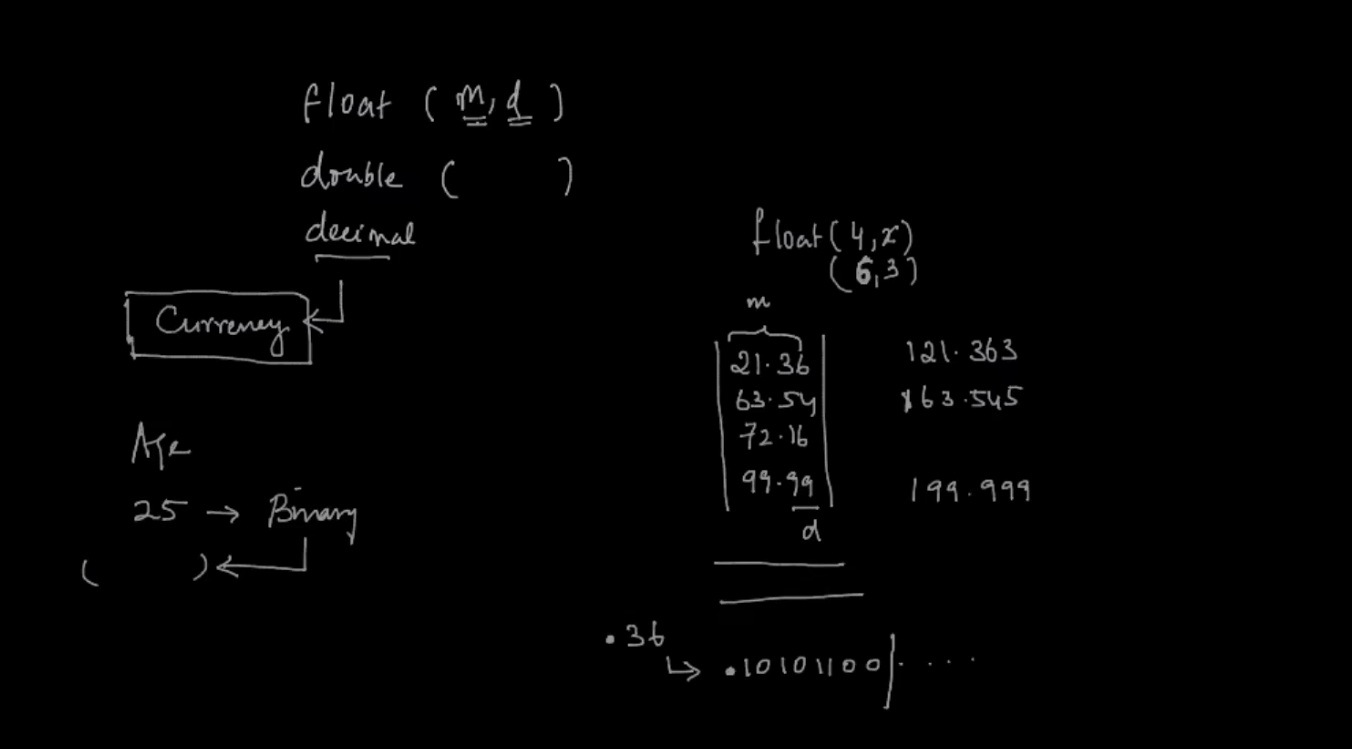 float ( m, d )
double ( )
decimal
Currency
Age
25 → Binary
( )
float(4,x)
(6,3)
m
21.36
63.54
72.16
99.99
d
121.363
163.545
199.999
.36
.10101100 ....